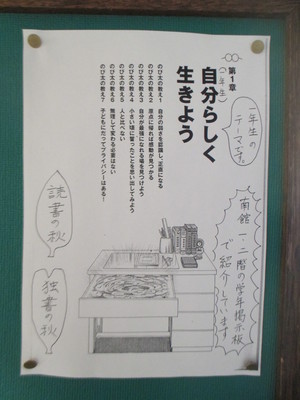 一年生の
テーマです。
第1章
(一年生)
自分らしく
生きよう
のび太の教え1 自分の弱さを認識し、正直になる
のび太の教え2 原点に帰れば感動が見つかる
のび太の教え3 自分が最強になれる場を見つけよう
のび太の教え4 小さい頃に誓ったことを思い出してみよう
のび太の教え5 人と比べない
のび太の教え6 無理して変わる必要はない
のび太の教え7 子どもにだってプライバシーはある!
南館一・二階の学年掲示板
で紹介しています
読書の秋
独書の秋